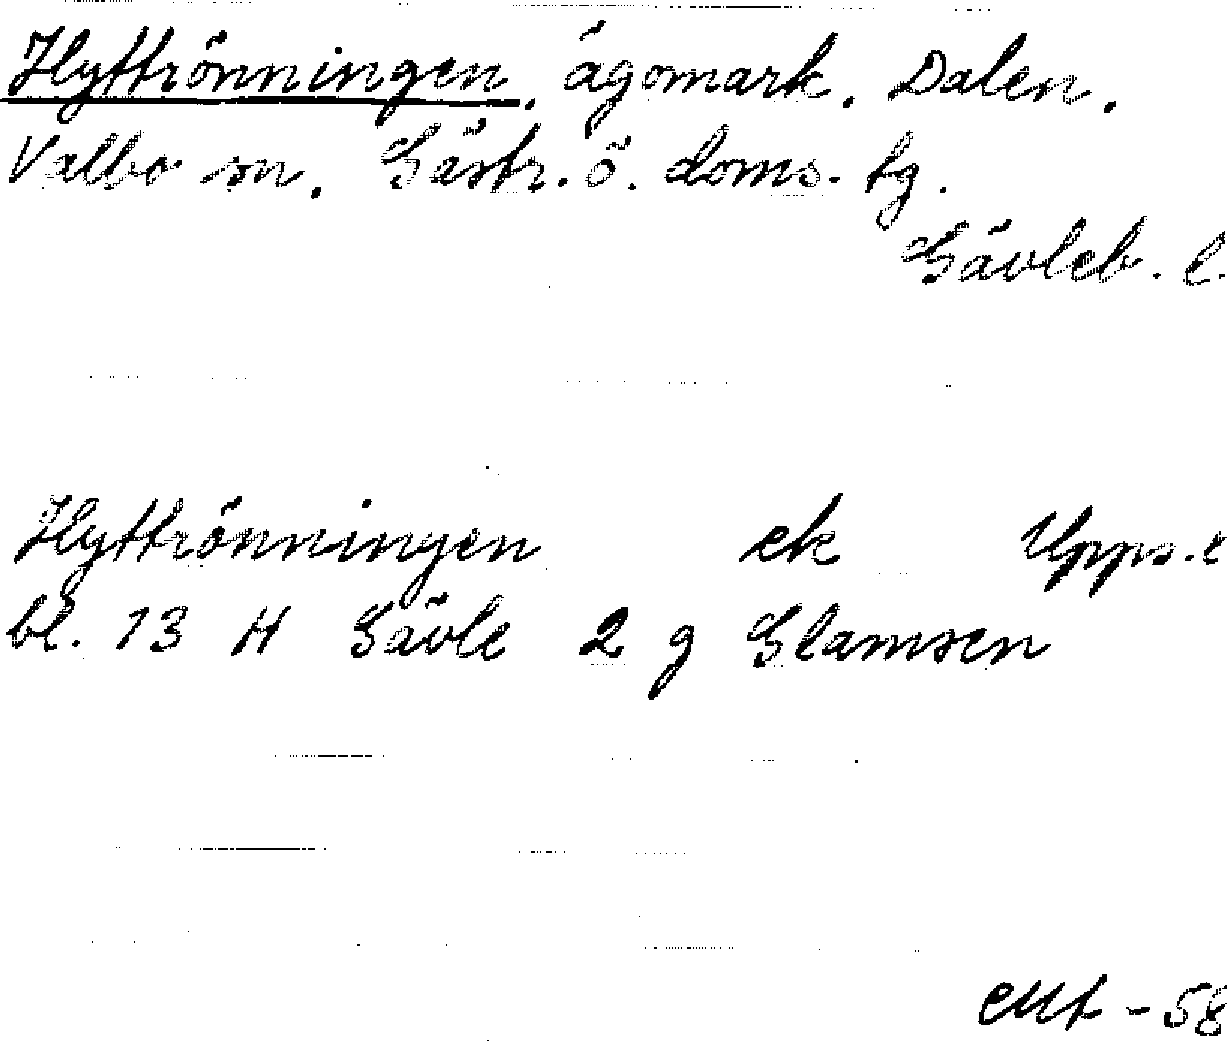 Hyttrönningen, ägomark, Dalen,
Valbo sn, Gästr. ö. doms. tg.
Gävleb. l.
Hyttrönningen ek Upps. l
bl. 13 H Gävle 2 g Glamsen
-58